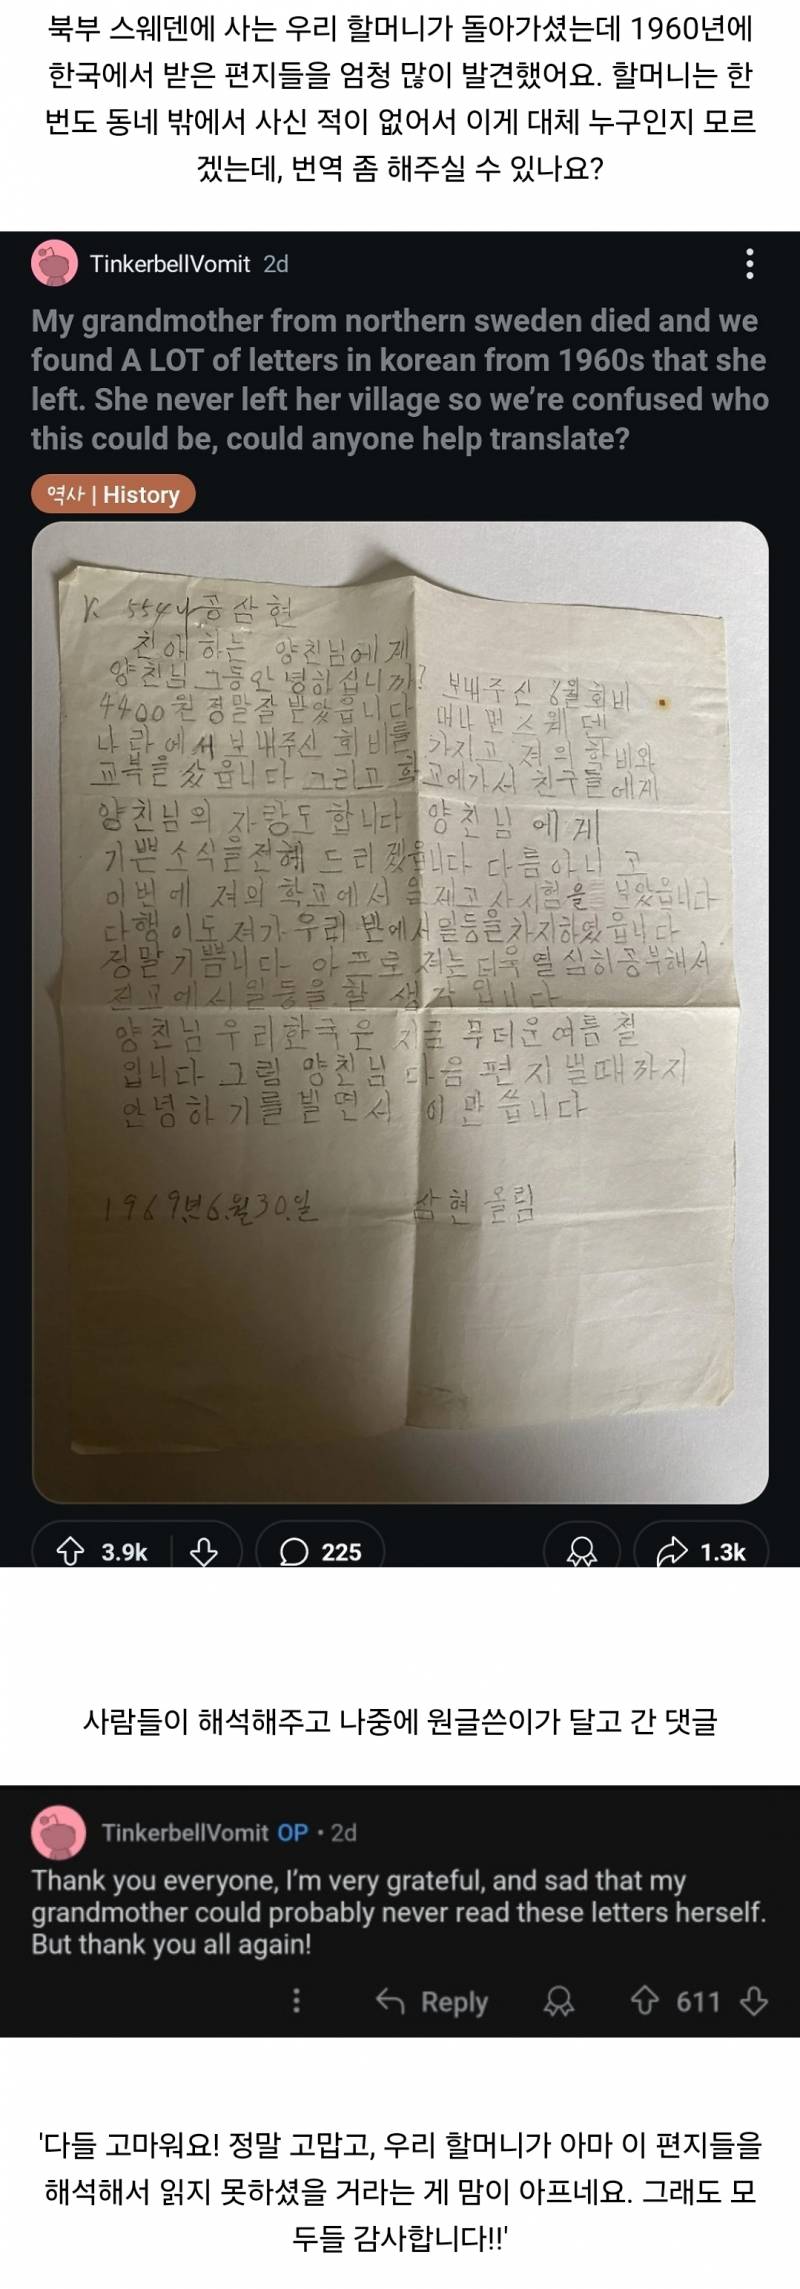 북부 스웨덴에 사는 우리 할머니가 돌아가셨는데 1960년에
한국에서 받은 편지들을 엄청 많이 발견했어요. 할머니는 한
번도 동네 밖에서 사신 적이 없어서 이게 대체 누구인지 모르
겠는데, 번역 좀 해주실 수 있나요?
TinkerbellVomit 2d
My grandmother from northern sweden died and we
found A LOT of letters in korean from 1960s that she
left. She never left her village so we're confused who
this could be, could anyone help translate?
역사 | History
K. 554 공삼현
친애하는 양친님에게
양친님 그동안 녕히십니까? 보내주신 6월 회비
4400원 정말잘 받았읍니다 머나먼스웨덴
나라에서 보내주신 회비를 가지고 저의 학비와
교북을 샀읍니다 그리고 학교에가서 친구들에게
양친님의 자랑도 합니다 양친님에게
기쁜소식을전해 드리겠읍니다 다름아니고
이번에 저의 학교에서 일제고사시험을 보았읍니다
다행이도 저가 우리 반에서 일등을차지하였읍니다
정말기쁨니다 아프로 저는 더욱열심히공부해서
전교에서일등을할 생각입니다
양친님 우리한국은 지금 무더운여름철
입니다 그럼 양친님 다음 편지낼때까지
안녕하기를 빌면서 이만 씁니다
1969년6월30일 삼현 올림
3.9k 225 1.3k
사람들이 해석해주고 나중에 원글쓴이가 달고 간 댓글
TinkerbellVomit OP • 2d
Thank you everyone, I'm very grateful, and sad that my
grandmother could probably never read these letters herself.
But thank you all again!
Reply 611
'다들 고마워요! 정말 고맙고, 우리 할머니가 아마 이 편지들을
해석해서 읽지 못하셨을 거라는 게 맘이 아프네요. 그래도 모
두들 감사합니다!!'